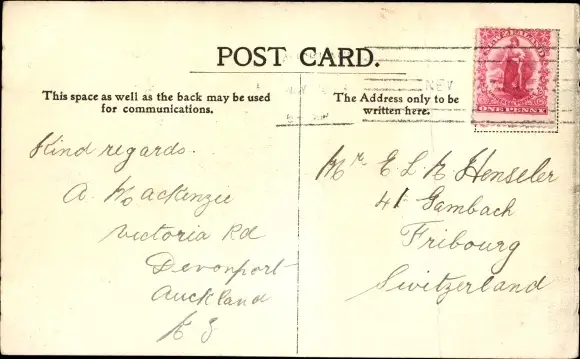 POST CARD.
This space as well as the back may be used
for communications.
The Address only to be
written here.
NEW ZEALAND
ONE PENNY
Kind regards.
A. Mackenzie
Victoria Rd
Devonport
Auckland
N Z
Mr. E L N Henseler
41 Gambach
Fribourg
Switzerland